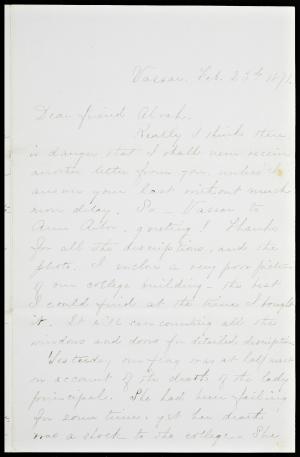 Vassar. Feb. 23rd 1871.
Dear friend Alvah.
Really I think there
is danger that I shall never receive
another letter from you, unless I
answer your last without much
more delay. So — Vassar to
Ann Arbor, greeting! Thanks
for all the descriptions, and the
photo. I enclose a very poor picture
of our college building — the best
I could find at the time I bought
it. It will can counting all the
windows and doors for detailed description
Yesterday our flag was at half mast
on account of the death of the lady
principal. She had been failing
for some time, yet her death
was a shock to the college. She